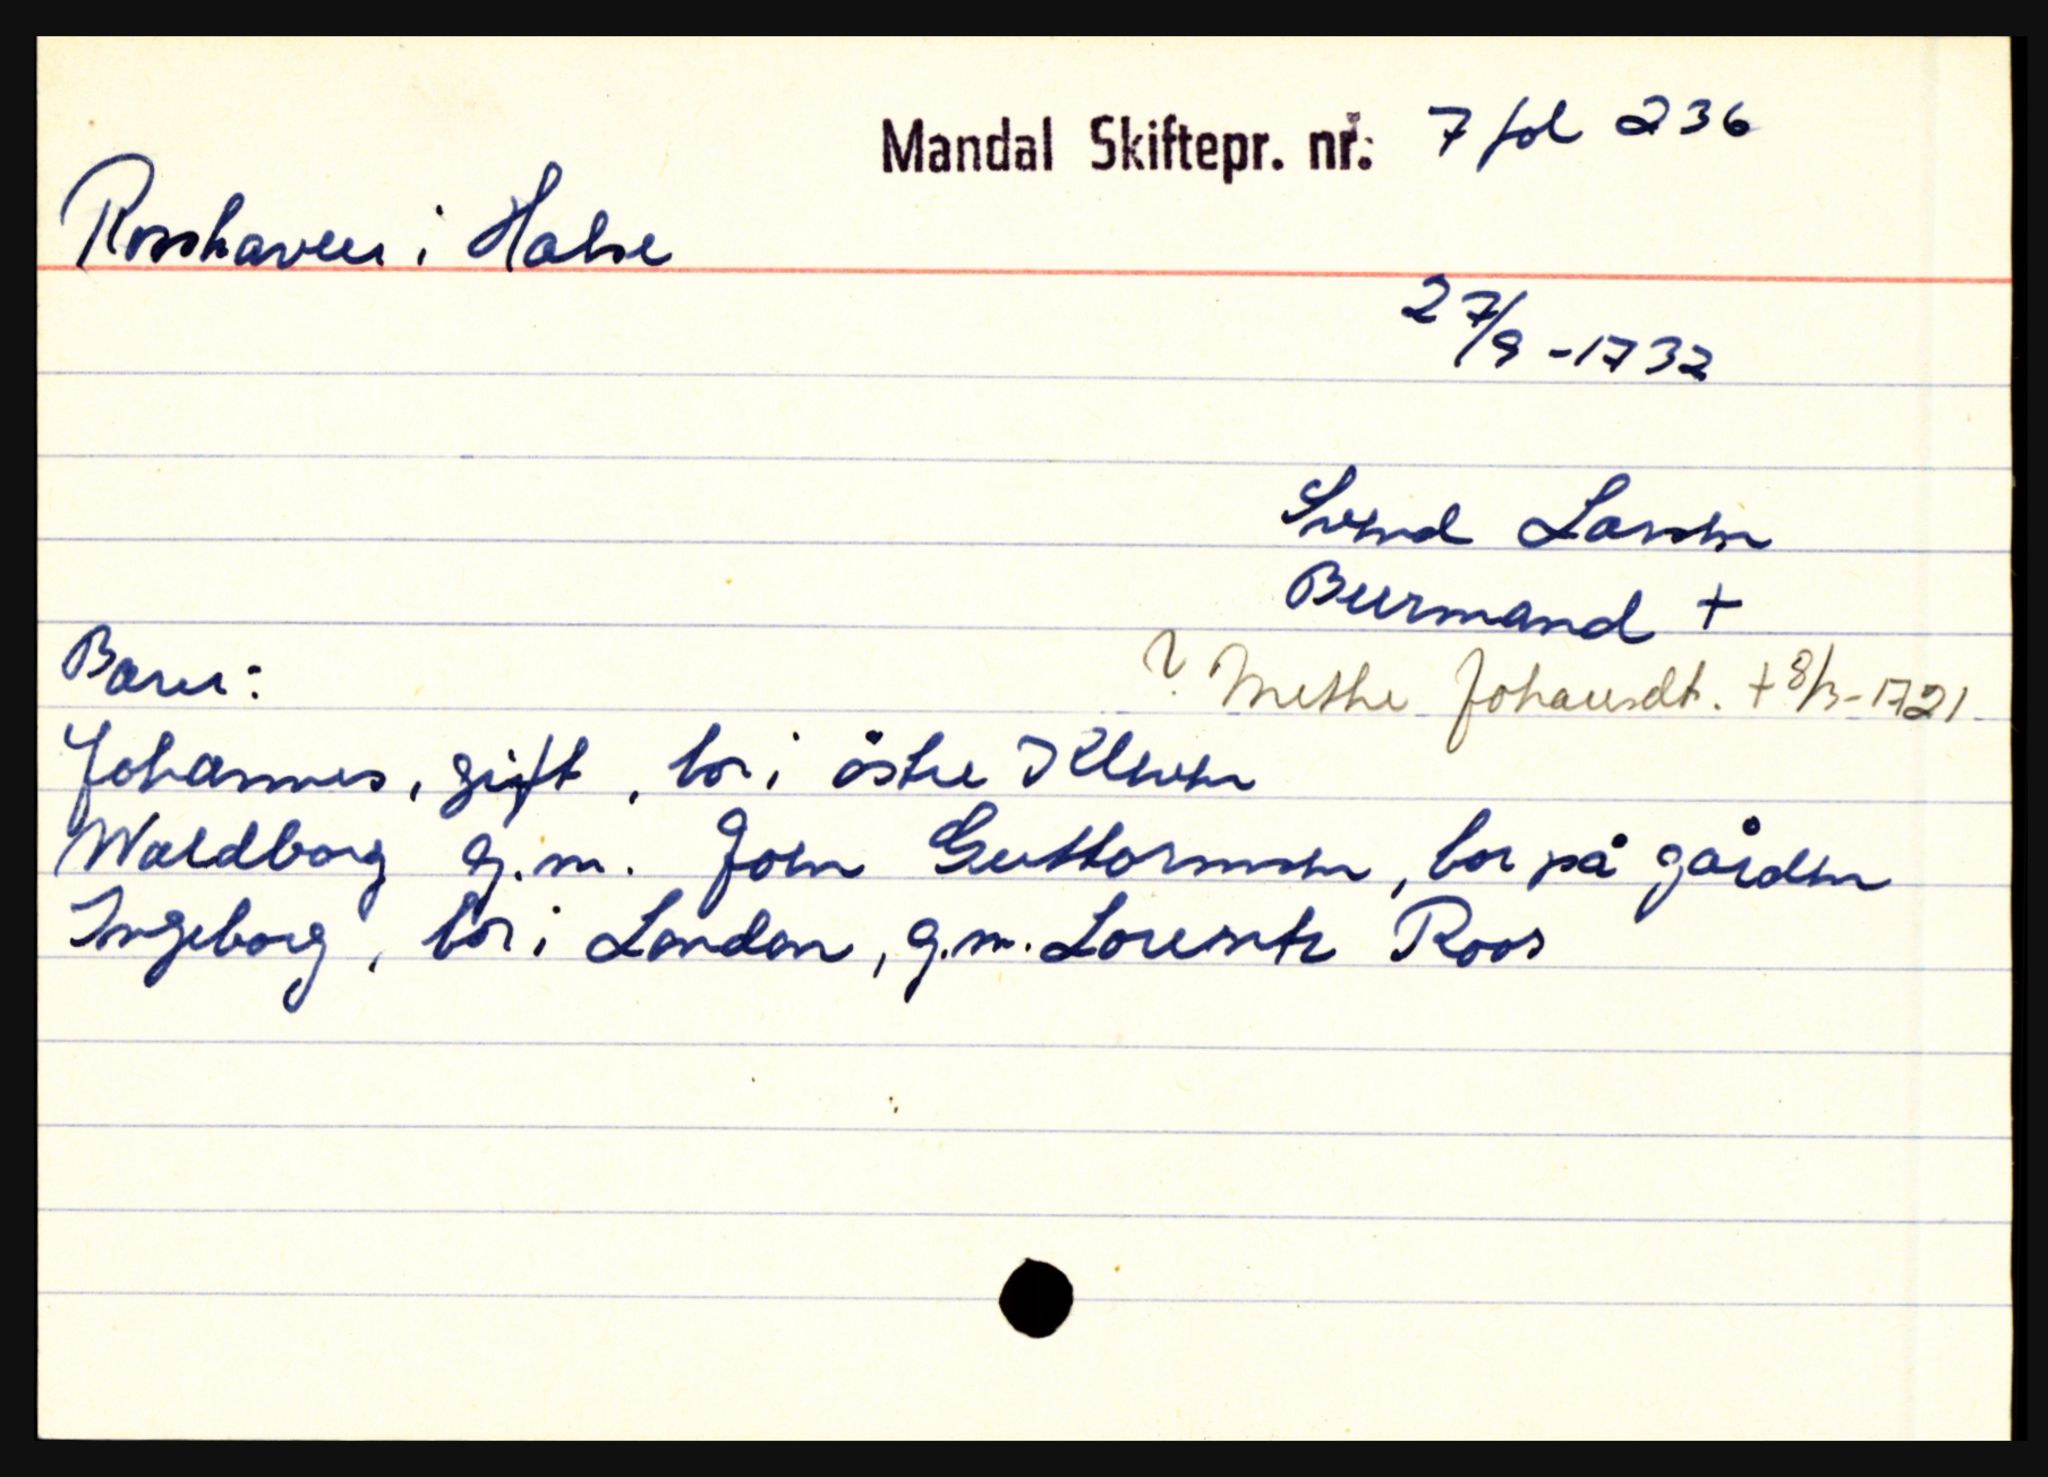 Mandal Skiftepr. nr: 7 fol 236
Rosshaven i Halse
27/9 - 1732
Svend Larsen
Buermand +
Barn:
? Methe Johansdt. + 8/3 - 1721
Johannes, gift, bor i östre Kleven
Waldborg g.m. Joen Guttormsen, bor på gården
Ingeborg, bor i London, g.m. Lorentz Roos